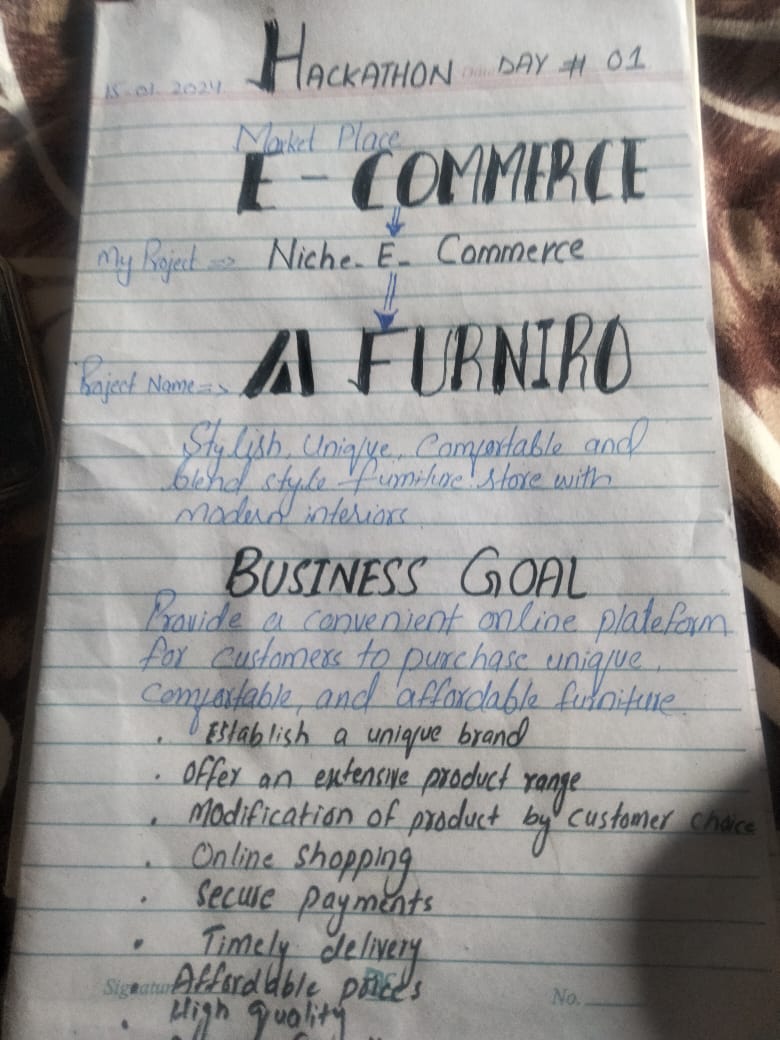 HACKATHON DAY # 01
15-01-2024
Market Place
E-COMMERCE
My Project => Niche-E-Commerce
Project Name => FURNIRO
Stylish, Unique, Comfortable and
blend style furniture store with
modern interiors
BUSINESS GOAL
Provide a convenient online plateform
for customers to purchase unique,
comfortable, and affordable furniture.
. Establish a unique brand
. Offer an extensive product range
. Modification of product by customer choice
. Online shopping
. Secure payments
. Timely delivery
. Affordable prices
Signature
No.
. High quality